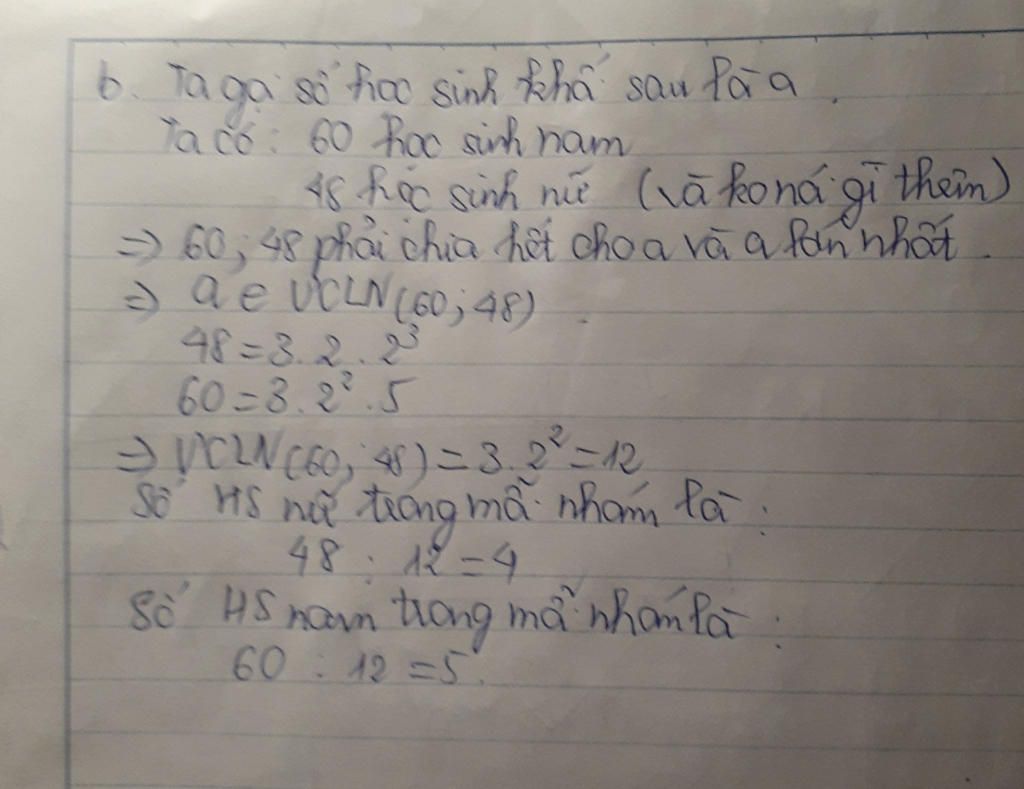 b. Ta gọi số học sinh khá sau là a.
Ta có: 60 học sinh nam
48 học sinh nữ (và ko nói gì thêm)
=> 60; 48 phải chia hết cho a và a lớn nhất.
=> a ∈ ƯCLN(60; 48).
48 = 3. 2. 2³
60 = 3. 2². 5
=> ƯCLN(60; 48) = 3. 2² = 12
Số HS nữ trong mỗi nhóm là:
48 : 12 = 4
Số HS nam trong mỗi nhóm là:
60 : 12 = 5.